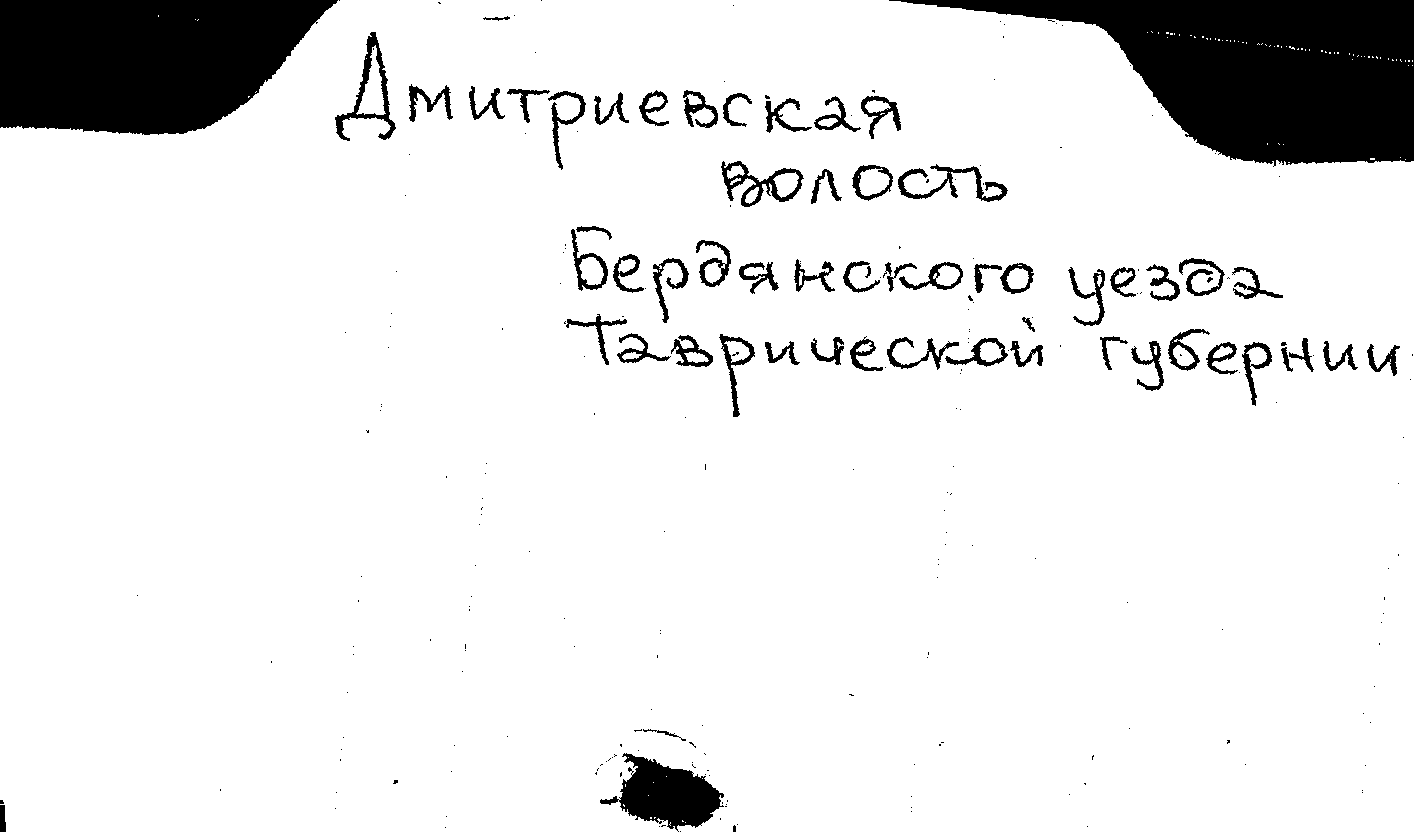 Дмитриевская
волость
Бердянского уезда
Таврической губернии